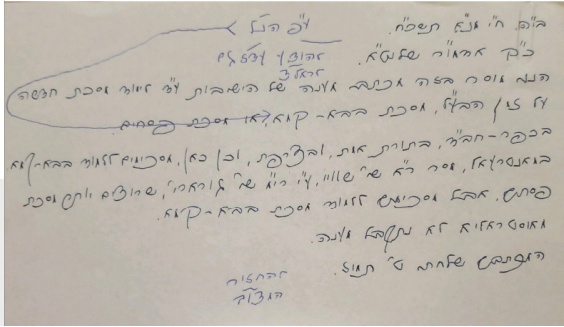 ב"ה. ח"י מנ"א תשכ"ח.
ע"פ הנ"ל
כ"ק אדמו"ר שליט"א.
להודיע
הנני מוסר בזה מכתבי מענה של הישיבות ע"ד לימוד מסכת חדשה
על זמן הבע"ל, מסכת בבא-קמא, או מסכת פסחים.
בכפר-חב"ד, בתורת אמת, ובצרפת, וכן כאן, מסכימים ללמוד בבא-קמא
במאנטרעאל, מסר ר"א שי' ע"י ר"מ שי' שרוצים יותר מסכת
פסחים, אבל מסכימים ללמוד מסכת בבא-קמא.
מאוסטראליא לא נתקבל מענה.
המכתבים שלחתי ט' תמוז.
להחזיר
המצו"ב